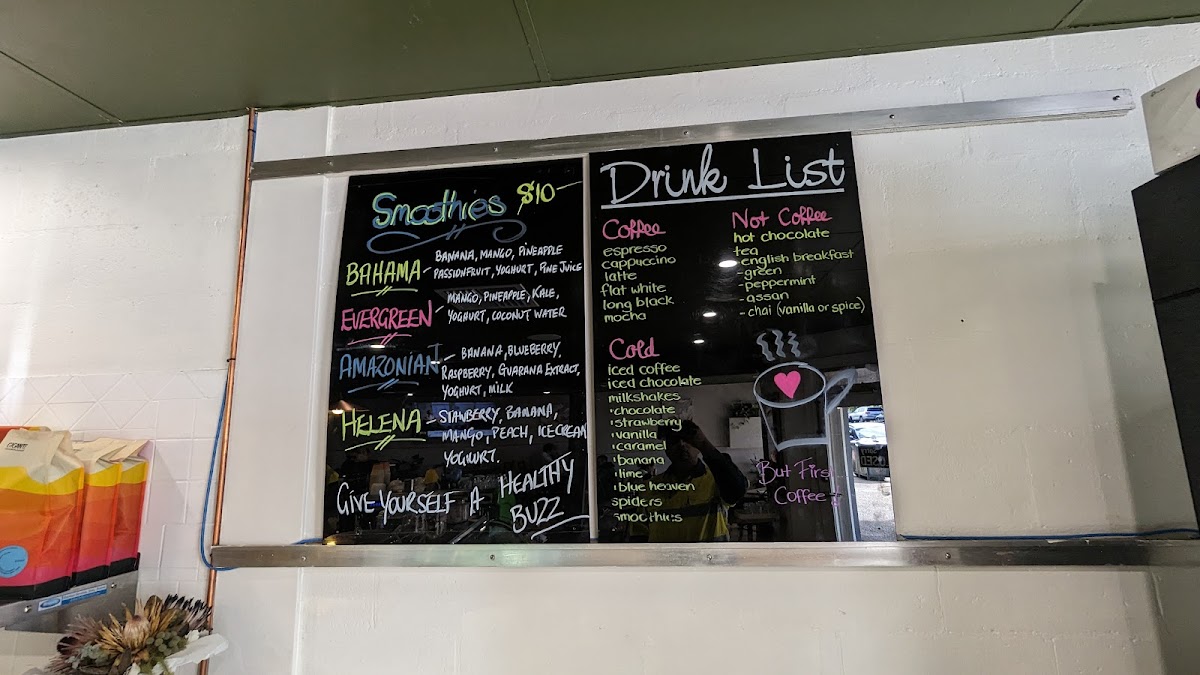 Smoothies $10
BAHAMA - BANANA, MANGO, PINEAPPLE
PASSIONFRUIT, YOGHURT, PINE JUICE
EVERGREEN - MANGO, PINEAPPLE, KALE,
YOGHURT, COCONUT WATER
AMAZONIAN - BANANA, BLUEBERRY,
RASPBERRY, GUARANA EXTRACT,
YOGHURT, MILK
HELENA - STANBERRY, BANANA,
MANGO, PEACH, ICECREAM
YOGHURT.
GIVE YOURSELF A HEALTHY
BUZZ
Drink List
Coffee
espresso
cappuccino
latte
flat white
long black
mocha
Not Coffee
hot chocolate
tea
-english breakfast
-green
-peppermint
-assan
-chai (vanilla or spice)
Cold
iced coffee
iced chocolate
milkshakes
'chocolate
'strawberry
'vanilla
'caramel
'banana
'lime
'blue heaven
spiders
smoothies
But First
Coffee!